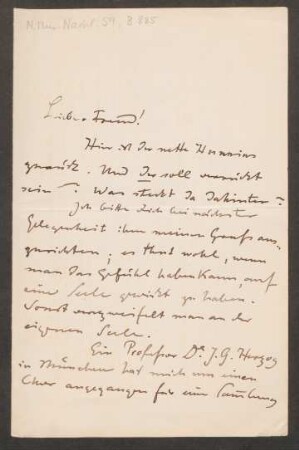 N. Mus. Nachl. 54, B 865
Lieber Freund!
Hier ist der nette
zurück. Und Der soll verrückt
sein? Was steckt da dahinter?
Ich bitte Dich bei nächster
Gelegenheit ihm meinen Gruß aus-
zurichten; es thut wohl, wenn
man das Gefühl haben kann, auf
eine Seele gewirkt zu haben.
Sonst verzweifelt man an der
eigenen Seele.
Ein Professor Dr. J. G. Herzog
in München hat mich um einen
Chor angegangen für eine Sammlung